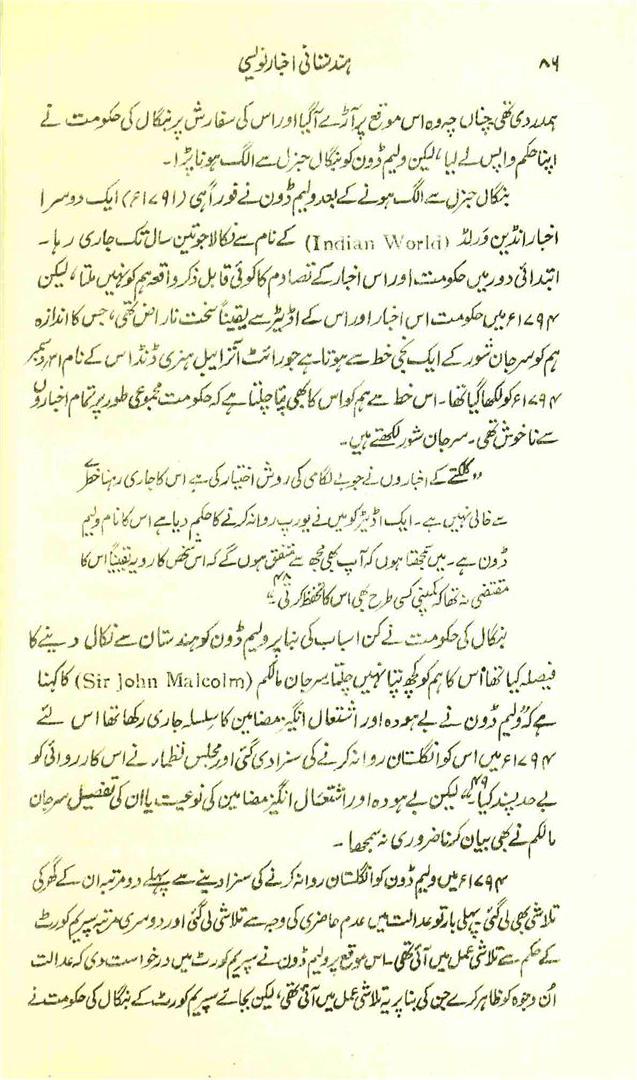 ۸۶ ہندستانی اخبار نویسی
ہمدردی تھی چناں چہ وہ اس موقع پر آڑے آگیا اور اس کی سفارش پر بنگال کی حکومت نے
اپنا حکم واپس لے لیا، لیکن ولیم ڈون کو بنگال جنرل سے الگ ہونا پڑا۔
بنگال جنرل سے الگ ہونے کے بعد ولیم ڈون نے فوراً ہی (۱۷۹۱ء) ایک دوسرا
اخبار انڈین ورلڈ (Indian World) کے نام سے نکالا جو تین سال تک جاری رہا۔
ابتدائی دور میں حکومت اور اس اخبار کے تصادم کا کوئی قابل ذکر واقعہ ہم کو نہیں ملتا، لیکن
۱۷۹۴ء میں حکومت اس اخبار اور اس کے اڈیٹر سے یقیناً سخت ناراض تھی، جس کا اندازہ
ہم کو سر جان شور کے ایک نجی خط سے ہوتا ہے جو رائٹ آنرابیل ہنری ڈنڈاس کے نام ۳۱ دسمبر
۱۷۹۴ء کو لکھا گیا تھا۔ اس خط سے ہم کو اس کا بھی پتا چلتا ہے کہ حکومت مجموعی طور پر تمام اخباروں
سے ناخوش تھی۔ سر جان شور لکھتے ہیں۔
"کلکتے کے اخباروں نے جو بے لگامی کی روش اختیار کی ہے اس کا جاری رہنا خطرے
سے خالی نہیں ہے۔ ایک اڈیٹر کو میں نے یورپ روانہ کرنے کا حکم دیا ہے اس کا نام ولیم
ڈون ہے۔ میں سمجھتا ہوں کہ آپ بھی مجھ سے متفق ہوں گے کہ اس شخص کا رویہ یقیناً اس کا
مقتضی نہ تھا کہ کمپنی کسی طرح بھی اس کا تحفظ کرتی"۴۸
بنگال کی حکومت نے کن اسباب کی بنا پر ولیم ڈون کو ہندستان سے نکال دینے کا
فیصلہ کیا تھا؟ اس کا ہم کو کچھ پتا نہیں چلتا۔ سر جان مالکم (Sir John Malcolm) کا کہنا
ہے کہ "ولیم ڈون نے بے ہودہ اور اشتعال انگیز مضامین کا سلسلہ جاری رکھا تھا اس لئے
۱۷۹۴ء میں اس کو انگلستان روانہ کرنے کی سزا دی گئی اور مجلس نظمار نے اس کارروائی کو
بے حد پسند کیا"۴۹ لیکن بے ہودہ اور اشتعال انگیز مضامین کی نوعیت یا ان کی تفصیل سر جان
مالکم نے بھی بیان کرنا ضروری نہ سمجھا۔
۱۷۹۴ء میں ولیم ڈون کو انگلستان روانہ کرنے کی سزا دینے سے پہلے دو مرتبہ ان کے گھر کی
تلاشی بھی لی گئی۔ پہلی بار تو عدالت میں عدم حاضری کی وجہ سے تلاشی لی گئی اور دوسری مرتبہ سپریم کورٹ
کے حکم سے تلاشی عمل میں آئی تھی۔ اس موقع پر ولیم ڈون نے سپریم کورٹ میں درخواست دی کہ عدالت
اُن وجوہ کو ظاہر کرے جن کی بنا پر یہ تلاشی عمل میں آئی تھی، لیکن بجائے سپریم کورٹ کے بنگال کی حکومت نے